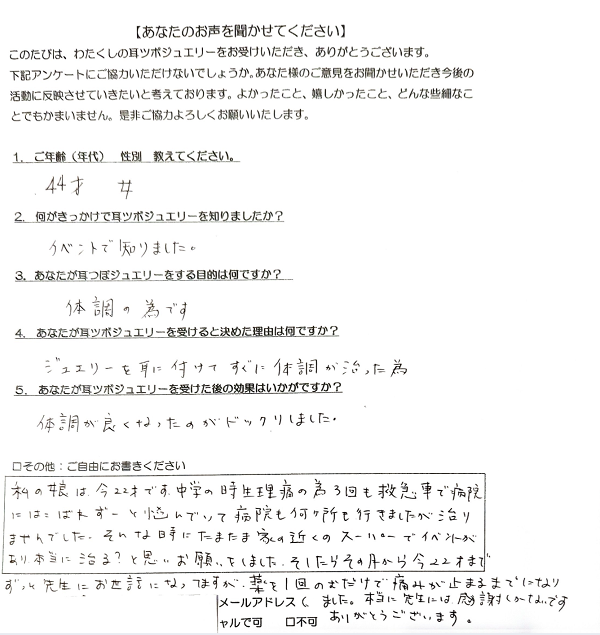 【あなたのお声を聞かせてください】
このたびは、わたくしの耳ツボジュエリーをお受けいただき、ありがとうございます。
下記アンケートにご協力いただけないでしょうか。あなた様のご意見をお聞かせいただき今後の
活動に反映させていきたいと考えております。よかったこと、嬉しかったこと、どんな些細なこ
とでもかまいません。是非ご協力よろしくお願いいたします。
1. ご年齢（年代） 性別 教えてください。
44才 女
2. 何がきっかけで耳ツボジュエリーを知りましたか？
イベントで知りました。
3. あなたが耳つぼジュエリーをする目的は何ですか？
体調の為です
4. あなたが耳ツボジュエリーを受けると決めた理由は何ですか？
ジュエリーを耳に付けてすぐに体調が治った為
5. あなたが耳ツボジュエリーを受けた後の効果はいかがですか？
体調が良くなったのがドックリしました。
□その他：ご自由にお書きください
私の娘は、今22才です。中学の時生理痛の為3回も救急車で病院
にはこばれずーと悩んでいて病院も何ヶ所も行きましたが治り
ませんでした。そんな時にたまたま家の近くのスーパーでイベントが
あり本当に治る？と思いお願いをしました。そしたらその月から今22才まで
ずっと先生にお世話になってますが、薬を1回のむだけで痛みが止まるまでになり
メールアドレス（ ました。本当に先生には感謝しかないです
ャルで可 □不可 ありがとうございます。